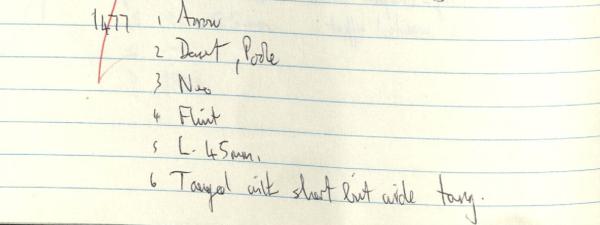 1477 1 Arrow
2 Dorset, Poole
3 Neo
4 Flint
5 L. 45mm.
6 Tanged with short but wide tang.